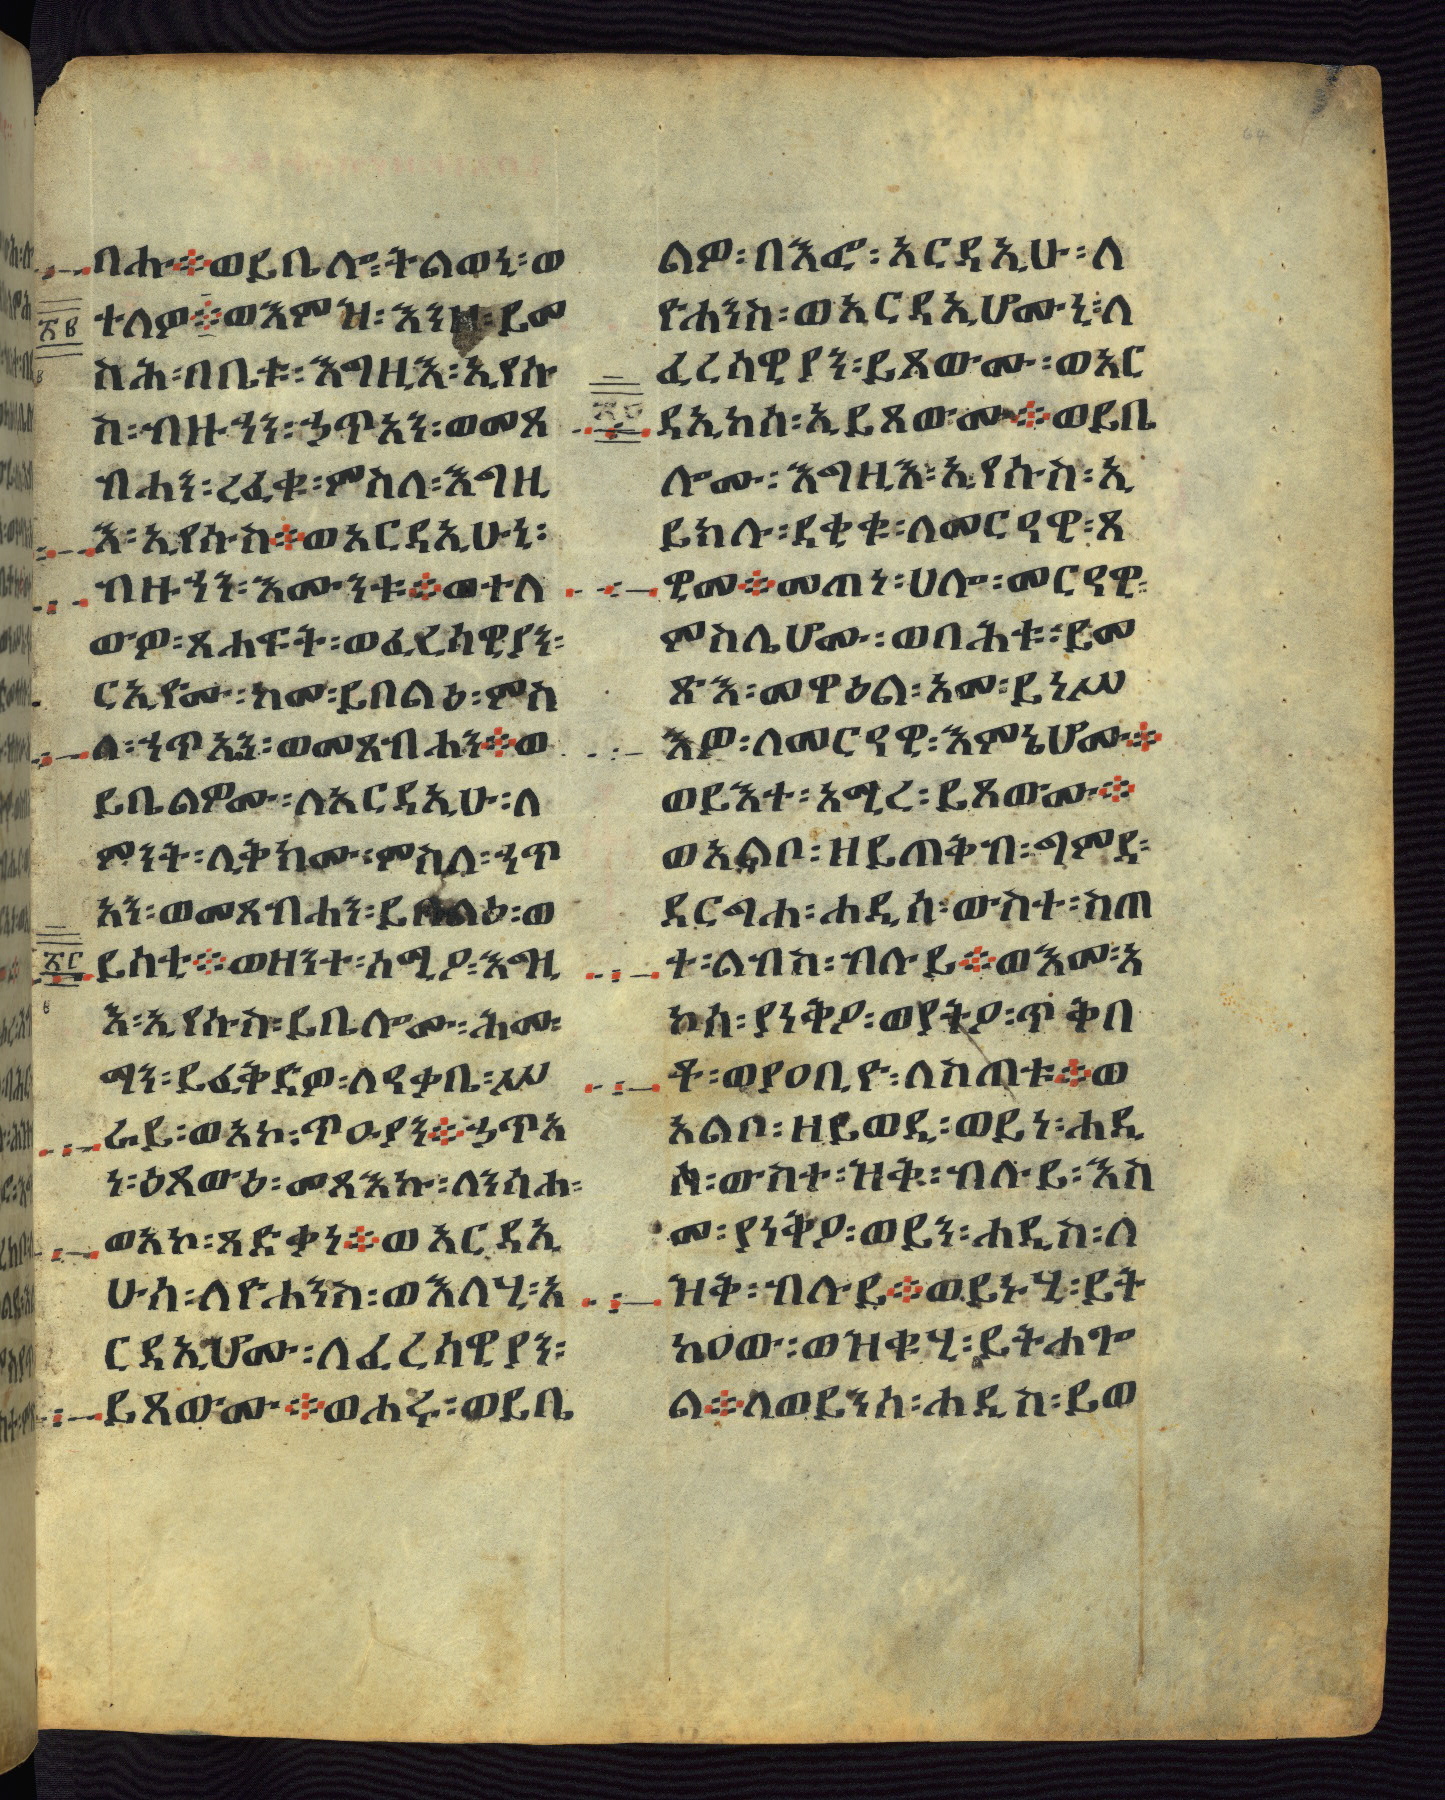 በሐ፨ወይቤሎ፡ትልወኒ፡ወ
ተለዎ፨ወእምዝ፡እንዘ፡ይመ
ስሕ፡በቤቱ፡እግዚእ፡ኢየሱ
ስ፡ብዙኃን፡ኃጥአን፡ወመጸ
ብሐን፡ረፈቁ፡ምስለ፡እግዚ
እ፡ኢየሱስ፨ወአርዳኢሁኒ፡
ብዙኃን፡እሙንቱ፨ወተለ
ውዎ፡ጸሐፍት፡ወፈሪሳዊያን፡
ርእዮሙ፡ከመ፡ይበልዕ፡ምስ
ለ፡ኃጥአን፡ወመጸብሐን፨ወ
ይቤልዎሙ፡ለአርዳኢሁ፡ለ
ምንት፡ሊቅክሙ፡ምስለ፡ኃጥ
አን፡ወመጸብሐን፡ይበልዕ፡ወ
ይሰቲ፨ወዘንተ፡ሰሚዖ፡እግዚ
እ፡ኢየሱስ፡ይቤሎሙ፡ሕሙ
ማን፡ይፈቅድዎ፡ለዓቃቤ፡ሥ
ራይ፡ወአኮ፡ጥዑያን፨ኃጥአ
ነ፡ዕጸውዕ፡መጻእኩ፡ለንሳሐ፡
ወአኮ፡ጻድቃነ፨ወአርዳኢ
ሁሰ፡ለዮሐንስ፡ወእለሂ፡አ
ርዳኢሆሙ፡ለፈሪሳዊያን፡
ይጸውሙ፨ወሐሩ፡ወይቤ
ልዎ፡በእፎ፡አርዳኢሁ፡ለ
ዮሐንስ፡ወአርዳኢሆሙኒ፡ለ
ፈሪሳዊያን፡ይጸውሙ፡ወአር
ዳኢከሰ፡ኢይጸውሙ፨ወይቤ
ሎሙ፡እግዚእ፡ኢየሱስ፡ኢ
ይክሉ፡ደቂቁ፡ለመርዓዊ፡ጸ
ዊመ፨መጠነ፡ሀሎ፡መርዓዊ፡
ምስሌሆሙ፡ወበሕቱ፡ይመ
ጽእ፡መዋዕል፡አመ፡ይነሥ
እዎ፡ለመርዓዊ፡እምኔሆሙ፨
ወይእተ፡አሚረ፡ይጸውሙ፨
ወአልቦ፡ዘይጠቅብ፡ግምደ፡
ድርግሐ፡ሐዲስ፡ውስተ፡ስጠ
ተ፡ልብስ፡ብሉይ፨ወእመ፡አ
ኮሰ፡ያነቅዖ፡ወያትዖ፡ጥቅበ
ቶ፡ወየዐቢዮ፡ለስጠቱ፨ወ
አልቦ፡ዘይወዲ፡ወይነ፡ሐዲ
ሰ፡ውስተ፡ዝቅ፡ብሉይ፡እስ
መ፡ያነቅዖ፡ወይን፡ሐዲስ፡ለ
ዝቅ፡ብሉይ፨ወይኑሂ፡ይት
ከዐው፡ወዝቁሂ፡ይትሐጐ
ል፨ለወይንሰ፡ሐዲስ፡ይወ